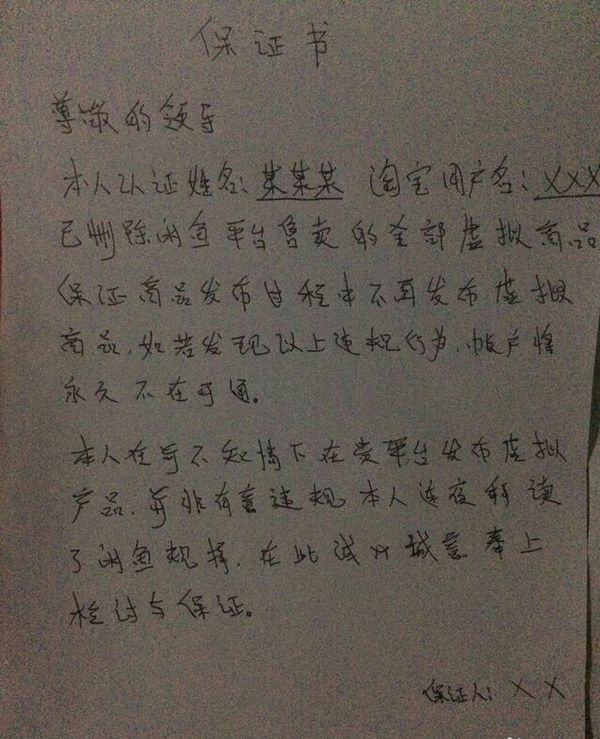 保证书
尊敬的领导
本人认证姓名:某某某 淘宝用户名:XXX
已删除闲鱼平台售卖的全部虚拟商品
保证商品发布过程中不再发布虚拟
商品,如若发现以上违规行为,帐户将
永久不在开通。
本人在毫不知情下在贵平台发布虚拟
产品,并非有意违规本人连夜科读
了闲鱼规择,在此诚以诚意奉上
检讨与保证。
保证人:XX